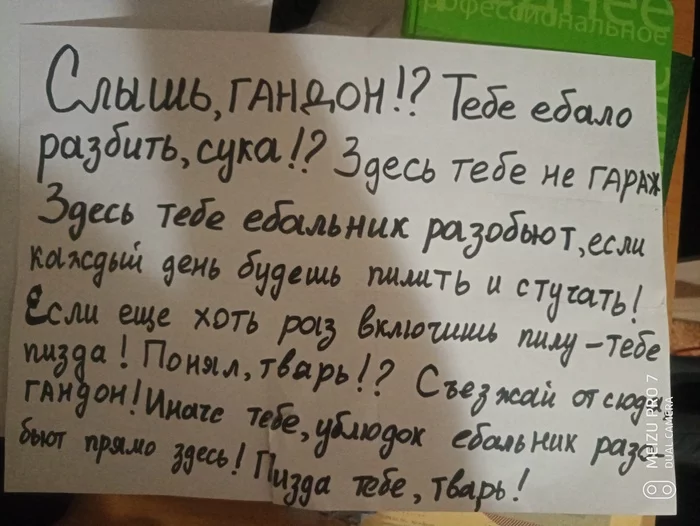 нее
рофессиональное
Слышь, ГАНДОН!? Тебе ебало
разбить, сука!? Здесь тебе не ГАРАЖ
Здесь тебе ебальник разобьют, если
каждый день будешь пилить и стучать!
Если еще хоть раз включишь пилу – тебе
пизда! Понял, тварь!? Съезжай отсюда
ГАНДОН! Иначе тебе, ублюдок ебальник разо-
бьют прямо здесь! Пизда тебе, тварь!
MEIZU PRO 7
DUAL CAMERA